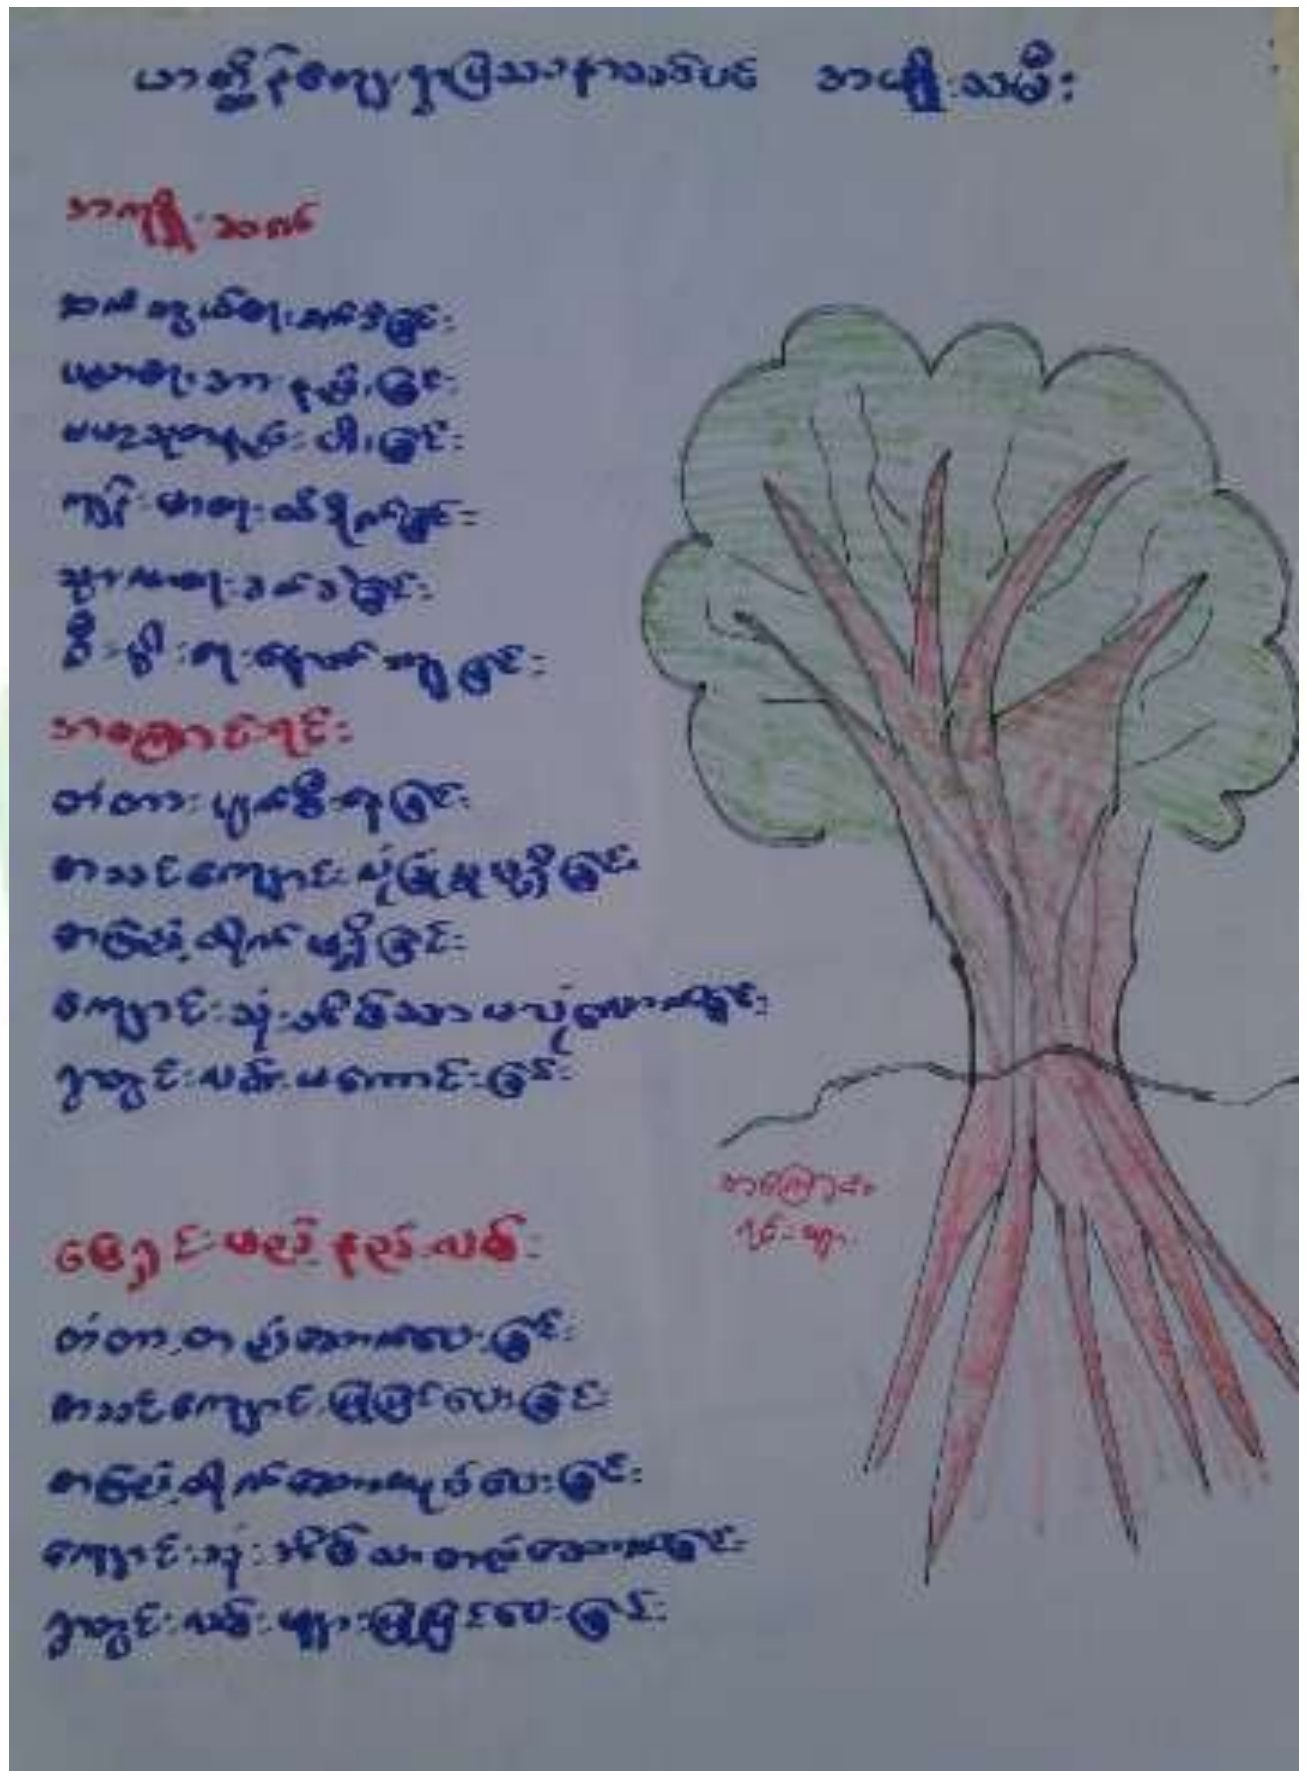 ကျေးရွာပြဿနာသစ်ပင် အမျိုးသမီး
အကျိုးဆက်
ဆက်သွယ်ရေးခက်ခဲခြင်း
ပညာရေးအားနည်းခြင်း
ဗဟုသုတနည်းပါးခြင်း
ကျန်းမာရေးထိခိုက်ခြင်း
ခက်ခဲခြင်း
စီးပွါးရေးနောက်ကျခြင်း
အကြောင်းရင်း
တံတားပျက်စီးနေခြင်း
စာသင်ကျောင်းလုံခြုံမှုမရှိခြင်း
စာကြည့်တိုက်မရှိခြင်း
ကျောင်းသုံးအိမ်သာမလုံလောက်ခြင်း
ရွာတွင်းလမ်းမကောင်းခြင်း
အကြောင်း
ရင်းများ
ဖြေရှင်းမည့်နည်းလမ်း
တံတားတည်ဆောက်ပေးခြင်း
စာသင်ကျောင်းပြုပြင်ပေးခြင်း
စာကြည့်တိုက်ဆောက်လုပ်ပေးခြင်း
ကျောင်းသုံးအိမ်သာတည်ဆောက်ခြင်း
ရွာတွင်းလမ်းများပြုပြင်ပေးခြင်း